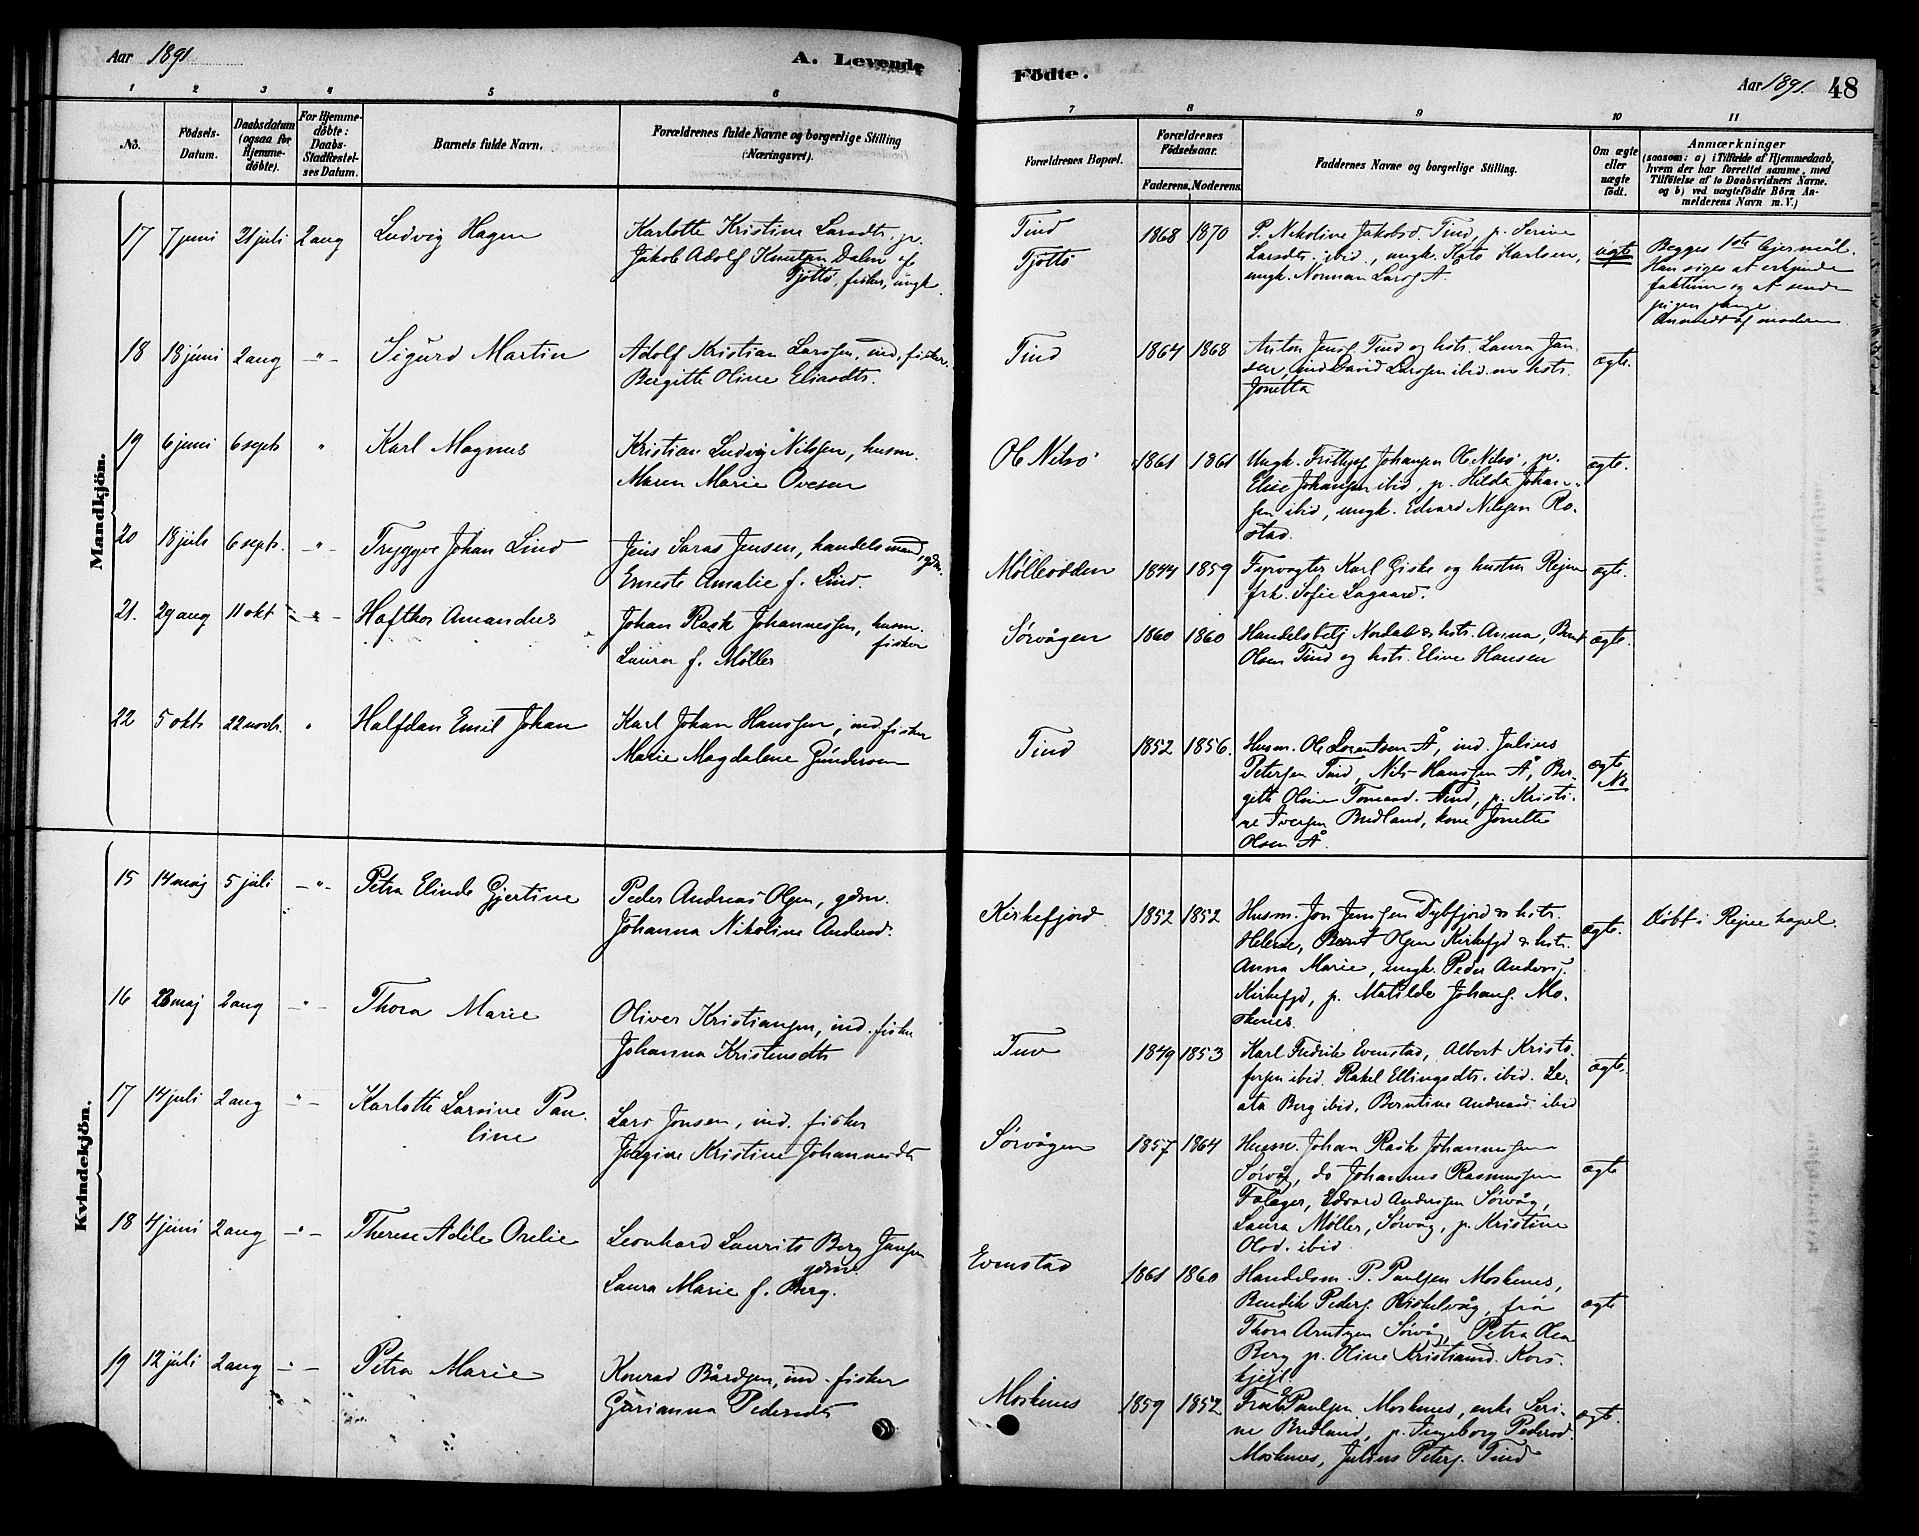 Aar 1891
A. Levende
Födte.
Aar 1891.
48
1 2 3 4 5 6
7 8 9 10 11
No.
Födsels-
Datum.
Daabsdatum
(ogsaa for
Hjemme-
døbte).
For Hjemme-
døbte:
Daabs-
Stadfæstel-
ses Datum.
Barnets fulde Navn.
Forældrenes fulde Navne og borgerlige Stilling
(Næringsvei).
Forældrenes Bopæl.
Forældrenes
Födselsaar.
Faderens. Moderens.
Faddernes Navne og borgerlige Stilling.
Om ægte
eller
uægte
født.
Anmærkninger
(saasom: a) i Tilfælde af Hjemmedaab,
hvem der har forrettet samme, med
Tilföielse af to Daabsvidners Navne.
og b) ved uægtefödte Börn An-
melderens Navn m. V.)
Mandkjön.
17 7 juni 21 juli 2 aug Ludvig Hagen
Karlotte Kristine Larsdtr. p.
Jakob Adolf Knutsen Dalen af
Tjøttø, fisker, ungk.
Tind
Tjøttø
1868 1870
P. Nikoline Jakobsd. Tind, p. Serine
Larsdtr. ibid., ungk. Kato Karlsen,
ungk. Norman Larsf Å.
uægte
Begges 1ste leiermål.
Han siges at erkjende
faktum og at sende
pigen penge.
Anmeldt af moderen
18 18 juni 2 aug -"- Sigurd Martin
Adolf Kristian Larssen, ind. fisker
Bergitte Oline Eliasdtr.
Tind
1864 1868
Anton Jensf Tind og hstr. Laura Jan-
sen, ind David Larssen ibid. m. hstr.
Jonetta
ægte.
19 6 juni 6 septr " Karl Magnus
Kristian Ludvig Nilssen, husm.
Maren Marie Ovesen
Ol. Nilsø
1861 1861
Ungk. Frithjof Johansen Ol. Nilsø, p.
Elise Johansen ibid, p. Hilda Johan-
sen ibid, ungk. Edvard Nilssen Ro-
stad.
ægte.
20 18 juli 6 septr. -"- Tryggve Johan Lind
Jens Saras Jensen, handelsmand, gdm.
Erneste Amalie f. Lind.
Mølleodden
1844 1859
Fyrvogter Karl Giske og hustru Rejne
frk. Sofie Lagaard.
ægte.
21. 29 aug 11 okt -"- Hafthor Amandus
Johan Rask Johannessen, husm.
fisker
Laura f. Møller
Sørvågen
1860 1860
Handelsbetj Nordal & hstr. Anna, Bernt
Olsen Tind og hstr. Eline Hansen
ægte.
22 5 okt 22 novbr. " Halfdan Emil Johan
Karl Johan Hanssen, ind. fisker
Marie Magdalene Gundersen
Tind
1852 1856.
Husm. Ole Lorentsen Å, ind. Julius
Petersen Tind, Nils Hanssen Å, Ber-
gitte Oline Tind, p. Kristi-
ne Iversen Bredland, kone Jonette
Olsen Å.
ægte
NB
Kvindekjön.
15 14 maj 5 juli -"- Petra Elinde Gjertine
Peder Andreas Olsen, gdm.
Johanna Nikoline Andersd.
Kirkefjord
1852 1852
Husm. Jon Jenssen Dybfjord & hstr.
Helene, Bernt Olsen Kirkefjd & hstr.
Anna Marie, ungk. Peder Andersf.
Kirkefjd, p. Matilde Johansf. Mo-
skenes.
ægte.
Døbt i Rejne kapel.
16 23 maj 2 aug -"- Thora Marie
Oliver Kristiansen, ind. fisker
Johanna Kristensdtr
Tuv
1849 1853
Karl Fredrik Evenstad, Albert Kristo-
fersen ibid. Rakel Ellingsdtr. ibid. Le-
ata Berg ibid, Berntine Andreasd. ibid
ægte.
17 14 juli 2 aug -"- Karlotte Larsine Pau-
line
Lars Jonsen, ind. fisker
Jørgine Kristine Johannesdtr
Sørvågen
1857 1864
Husm. Johan Rask Johannessen
Sørvåg, do Johannes Rasmussen
Edvard Anderssen Sørvåg,
Laura Møller, Sørvåg, p. Kristine
Olsd. ibid
ægte
18 4 juni 2 aug -"- Therese Adele Orelie
Leonhard Laurits Berg Jansen
gdm.
Laura Marie f. Berg.
Evenstad
1861 1860
Handelsm. P. Paulsen Moskenes,
Bendik Pedersf. fra
Thora Arntzen Sørvåg, Petra Olea
Berg p. Oline Kristiansd. Kors-
ægte
19 12 juli 2 aug -"- Petra Marie
Konrad Bårdsen, ind. fisker
Gurianna Pedersdtr
Moskenes
1859 1852
Fru E Paulsen Moskenes, enke Seri-
ne Bredland, p. Ingeborg Pedersd.
Moskenes, Julius Petersf. Tind
ægte.